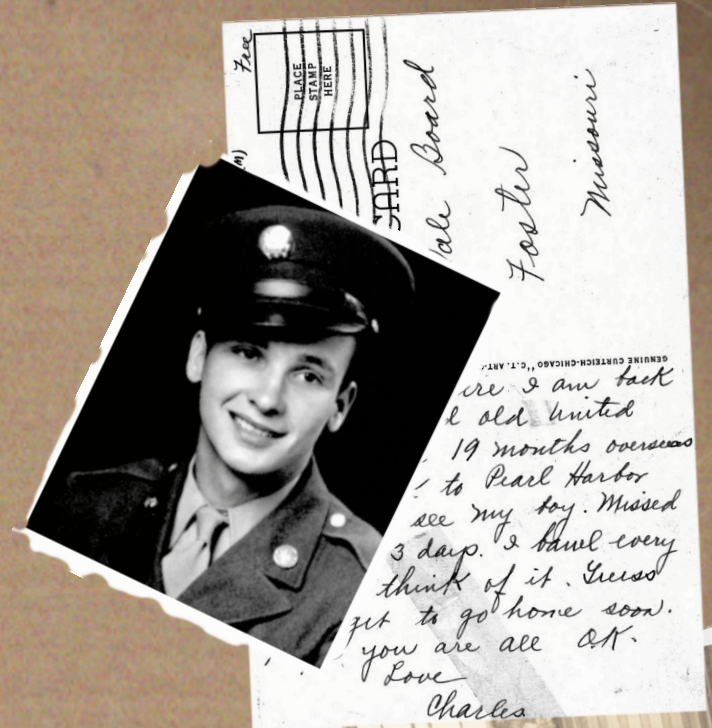 Free
PLACE
STAMP
HERE
(M)
CARD
Board
Foster
Missouri
GENUINE CURTEICH-CHICAGO "C.T. ART-
I am back
old United
19 months overseas
to Pearl Harbor
see my boy. Missed
3 days. I bawl every
think of it. Guess
get to go home soon.
you are all O.K.
Love
Charles